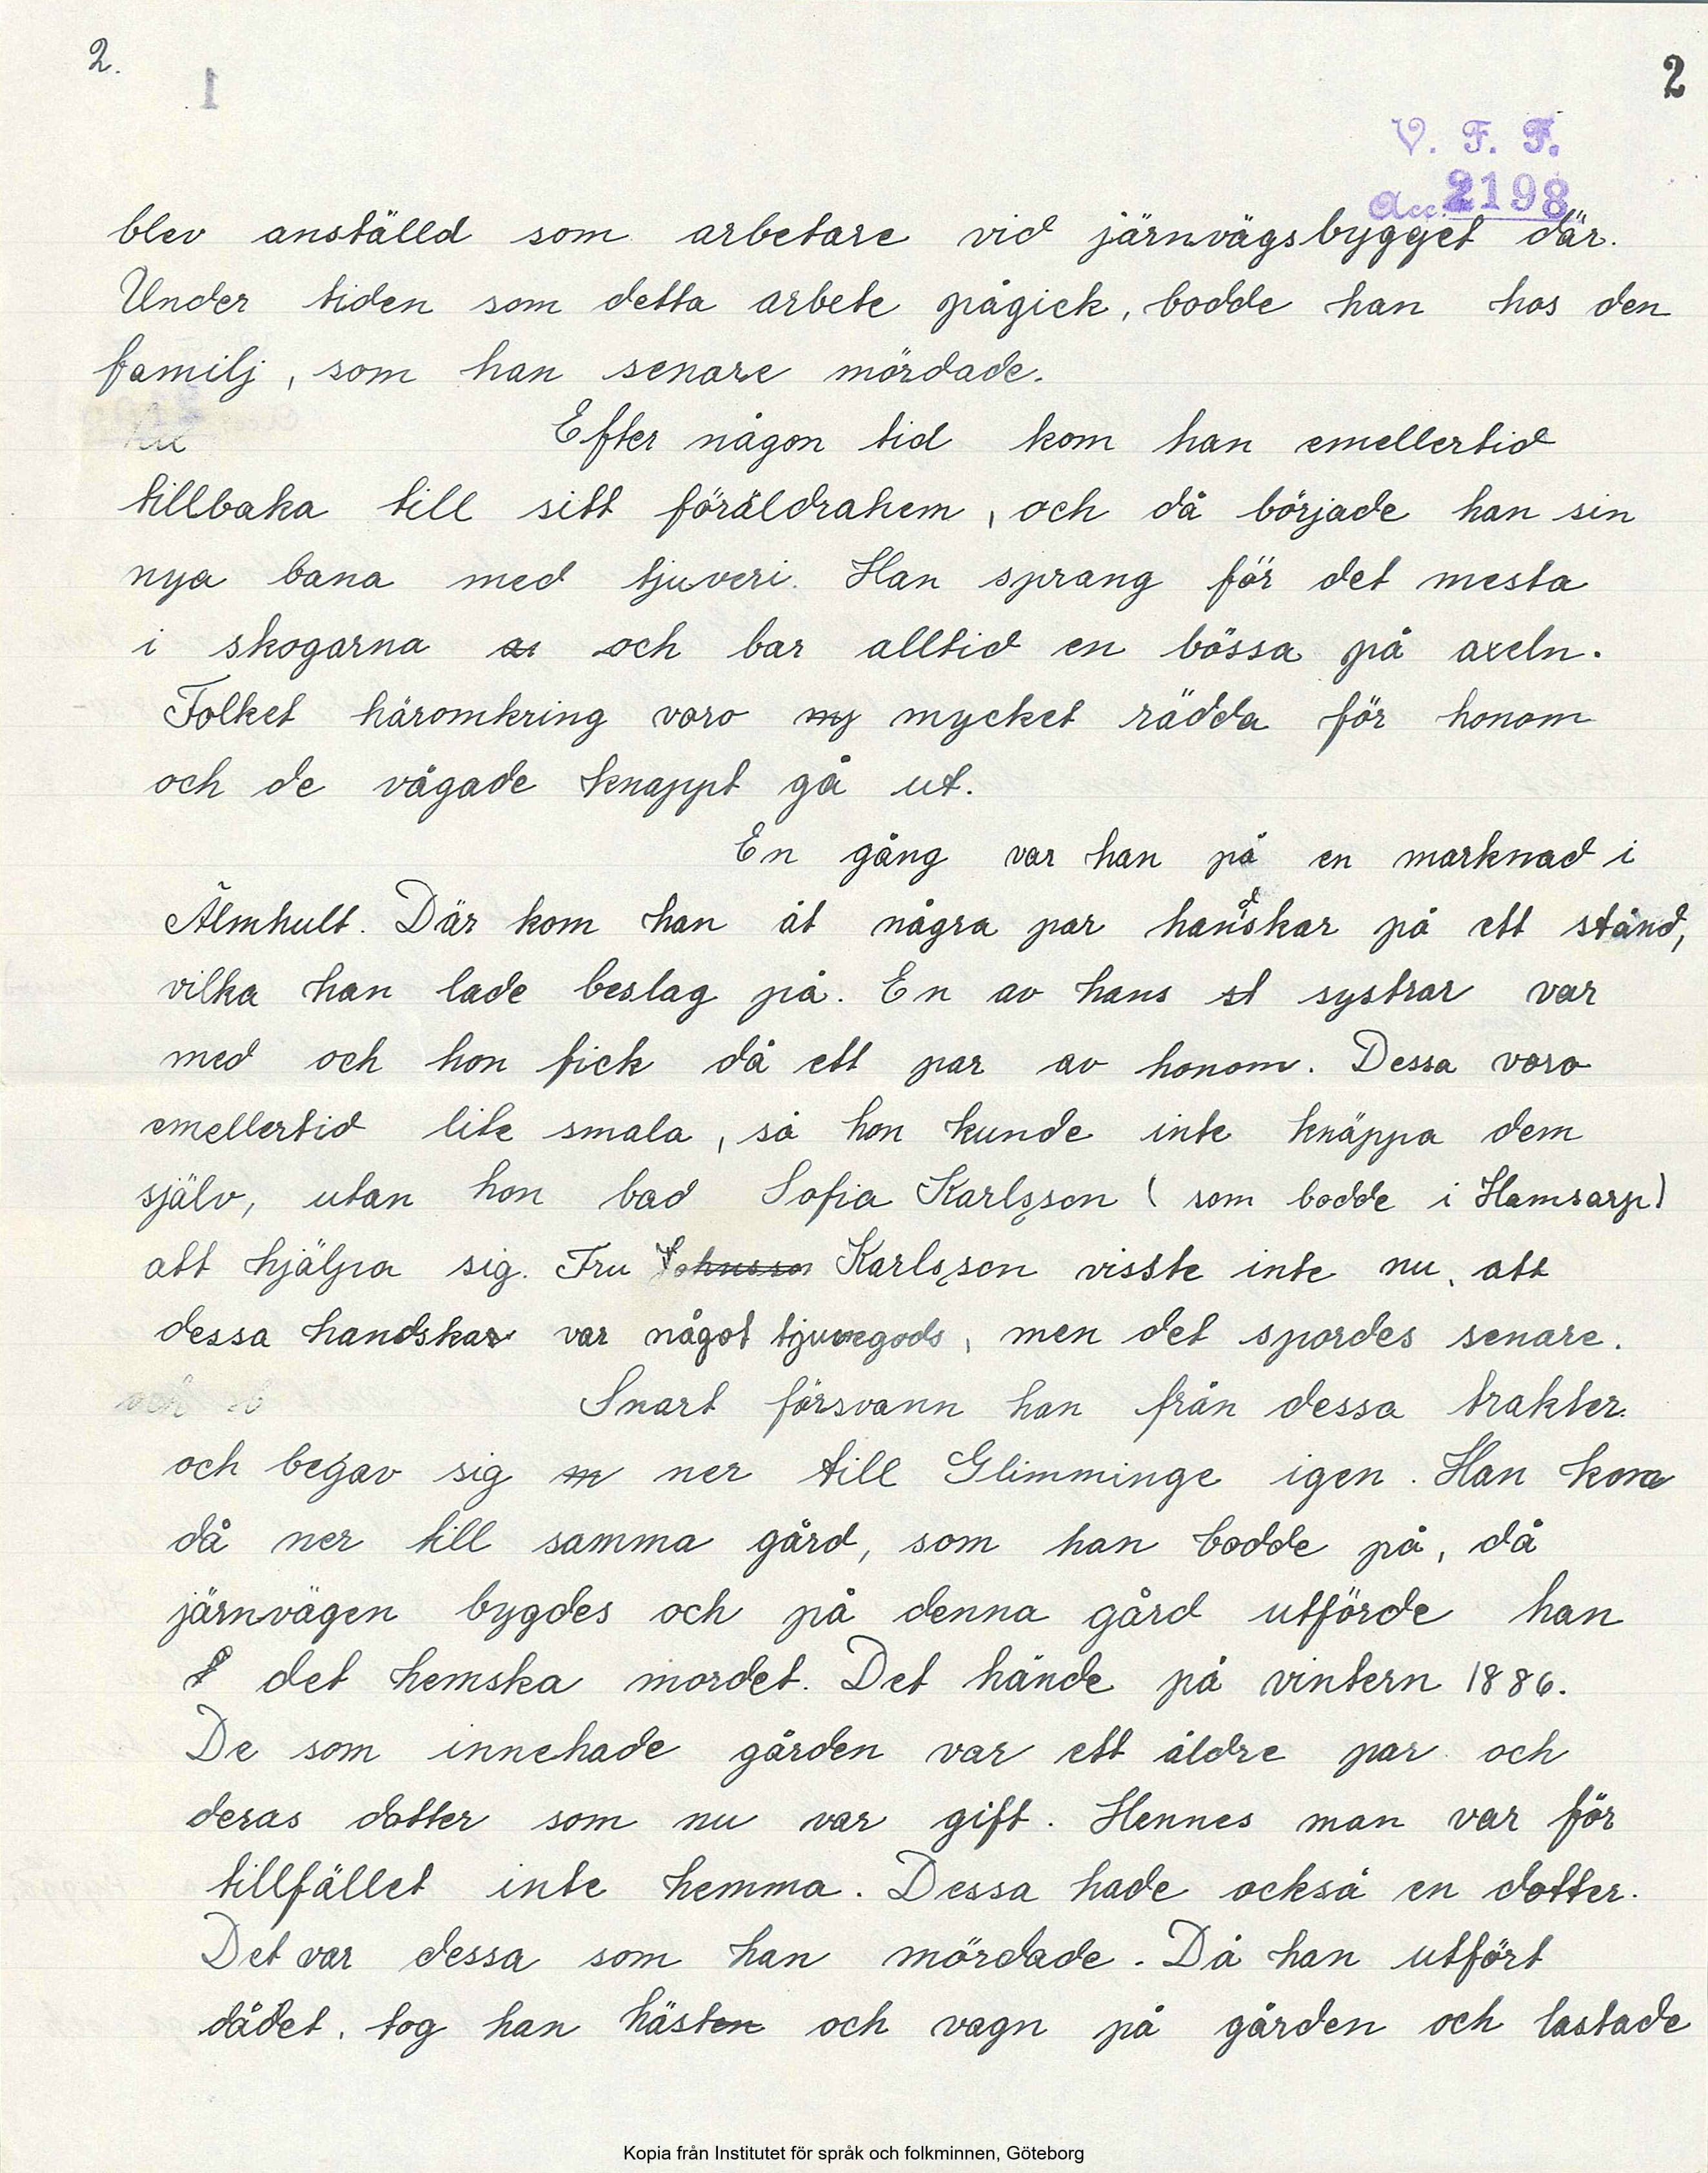 2.
1
2
V. F. F.
Acc. 2198
blev anställd som arbetare vid järnvägsbygget där.
Under tiden som detta arbete pågick, bodde han hos den
familj, som han senare mördade.
Efter någon tid kom han emellertid
tillbaka till sitt föräldrahem, och då började han sin
nya bana med tjuveri. Han sprang för det mesta
i skogarna och bar alltid en bössa på axeln.
Folket häromkring voro my mycket rädda för honom
och de vågade knappt gå ut.
En gång var han på en marknad i
Älmhult. Där kom han åt några par handskar på ett stånd,
vilka han lade beslag på. En av hans st systrar var
med och hon fick då ett par av honom. Dessa voro
emellertid lite smala, så hon kunde inte knäppa dem
själv, utan hon bad Sofia Karlsson (som bodde i Hamsarp)
att hjälpa sig. Fru Johnsson Karlsson visste inte nu, att
dessa handskar var något tjuvegods, men det spordes senare.
och b
Snart försvann han från dessa trakter
och begav sig n ner till Glimminge igen. Han kom
då ner till samma gård, som han bodde på, då
järnvägen bygdes och på denna gård utförde han
det hemska mordet. Det hände på vintern 1886.
De som innehade gården var ett äldre par och
deras dotter som nu var gift. Hennes man var för
tillfället inte hemma. Dessa hade också en dotter.
Det var dessa som han mördade. Då han utfört
dådet, tog han hästen och vagn på gården och lastade
Kopia från Institutet för språk och folkminnen, Göteborg